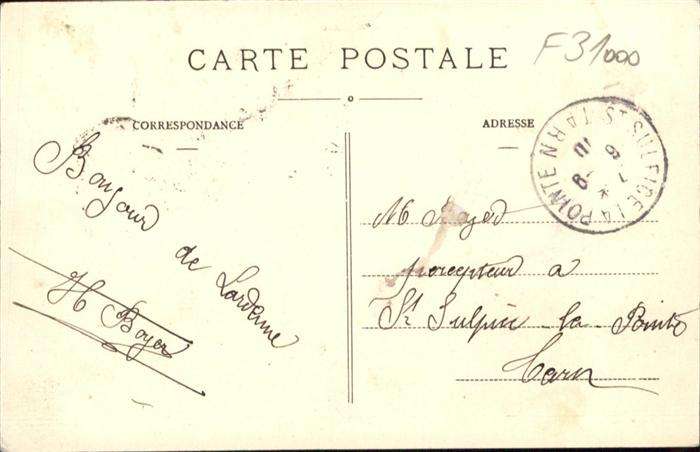 CARTE POSTALE
F31000
CORRESPONDANCE
ADRESSE
ST SULPICE LA POINTE
TARN
Bonjour
de Lardenne
H Boyer
Mr
percepteur a
St Sulpice la Pointe
Tarn